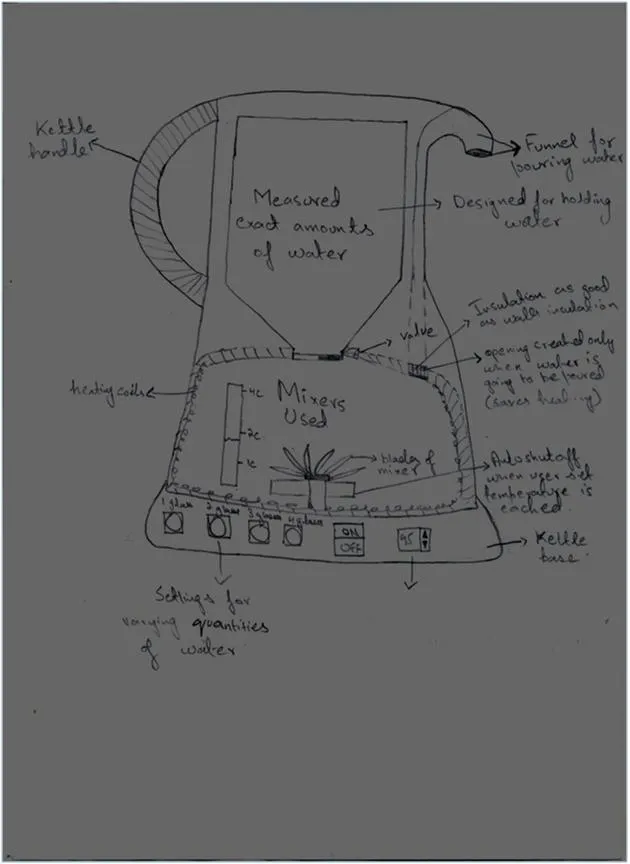 Kettle
handle
Funnel for
pouring water
Measured
exact amounts
of water
Designed for holding
water
Insulation as good
as walls insulation
valve
opening created only
when water is
going to be poured
(saves heating)
heating coils
Mixers
Used
4c
2c
1c
blades of
mixer
Auto shutoff
when user set
temperature is
eached.
1 glass
2 glass
3 glass
4 glass
ON
OFF
95
Kettle
base
Settings for
varying quantities
of water